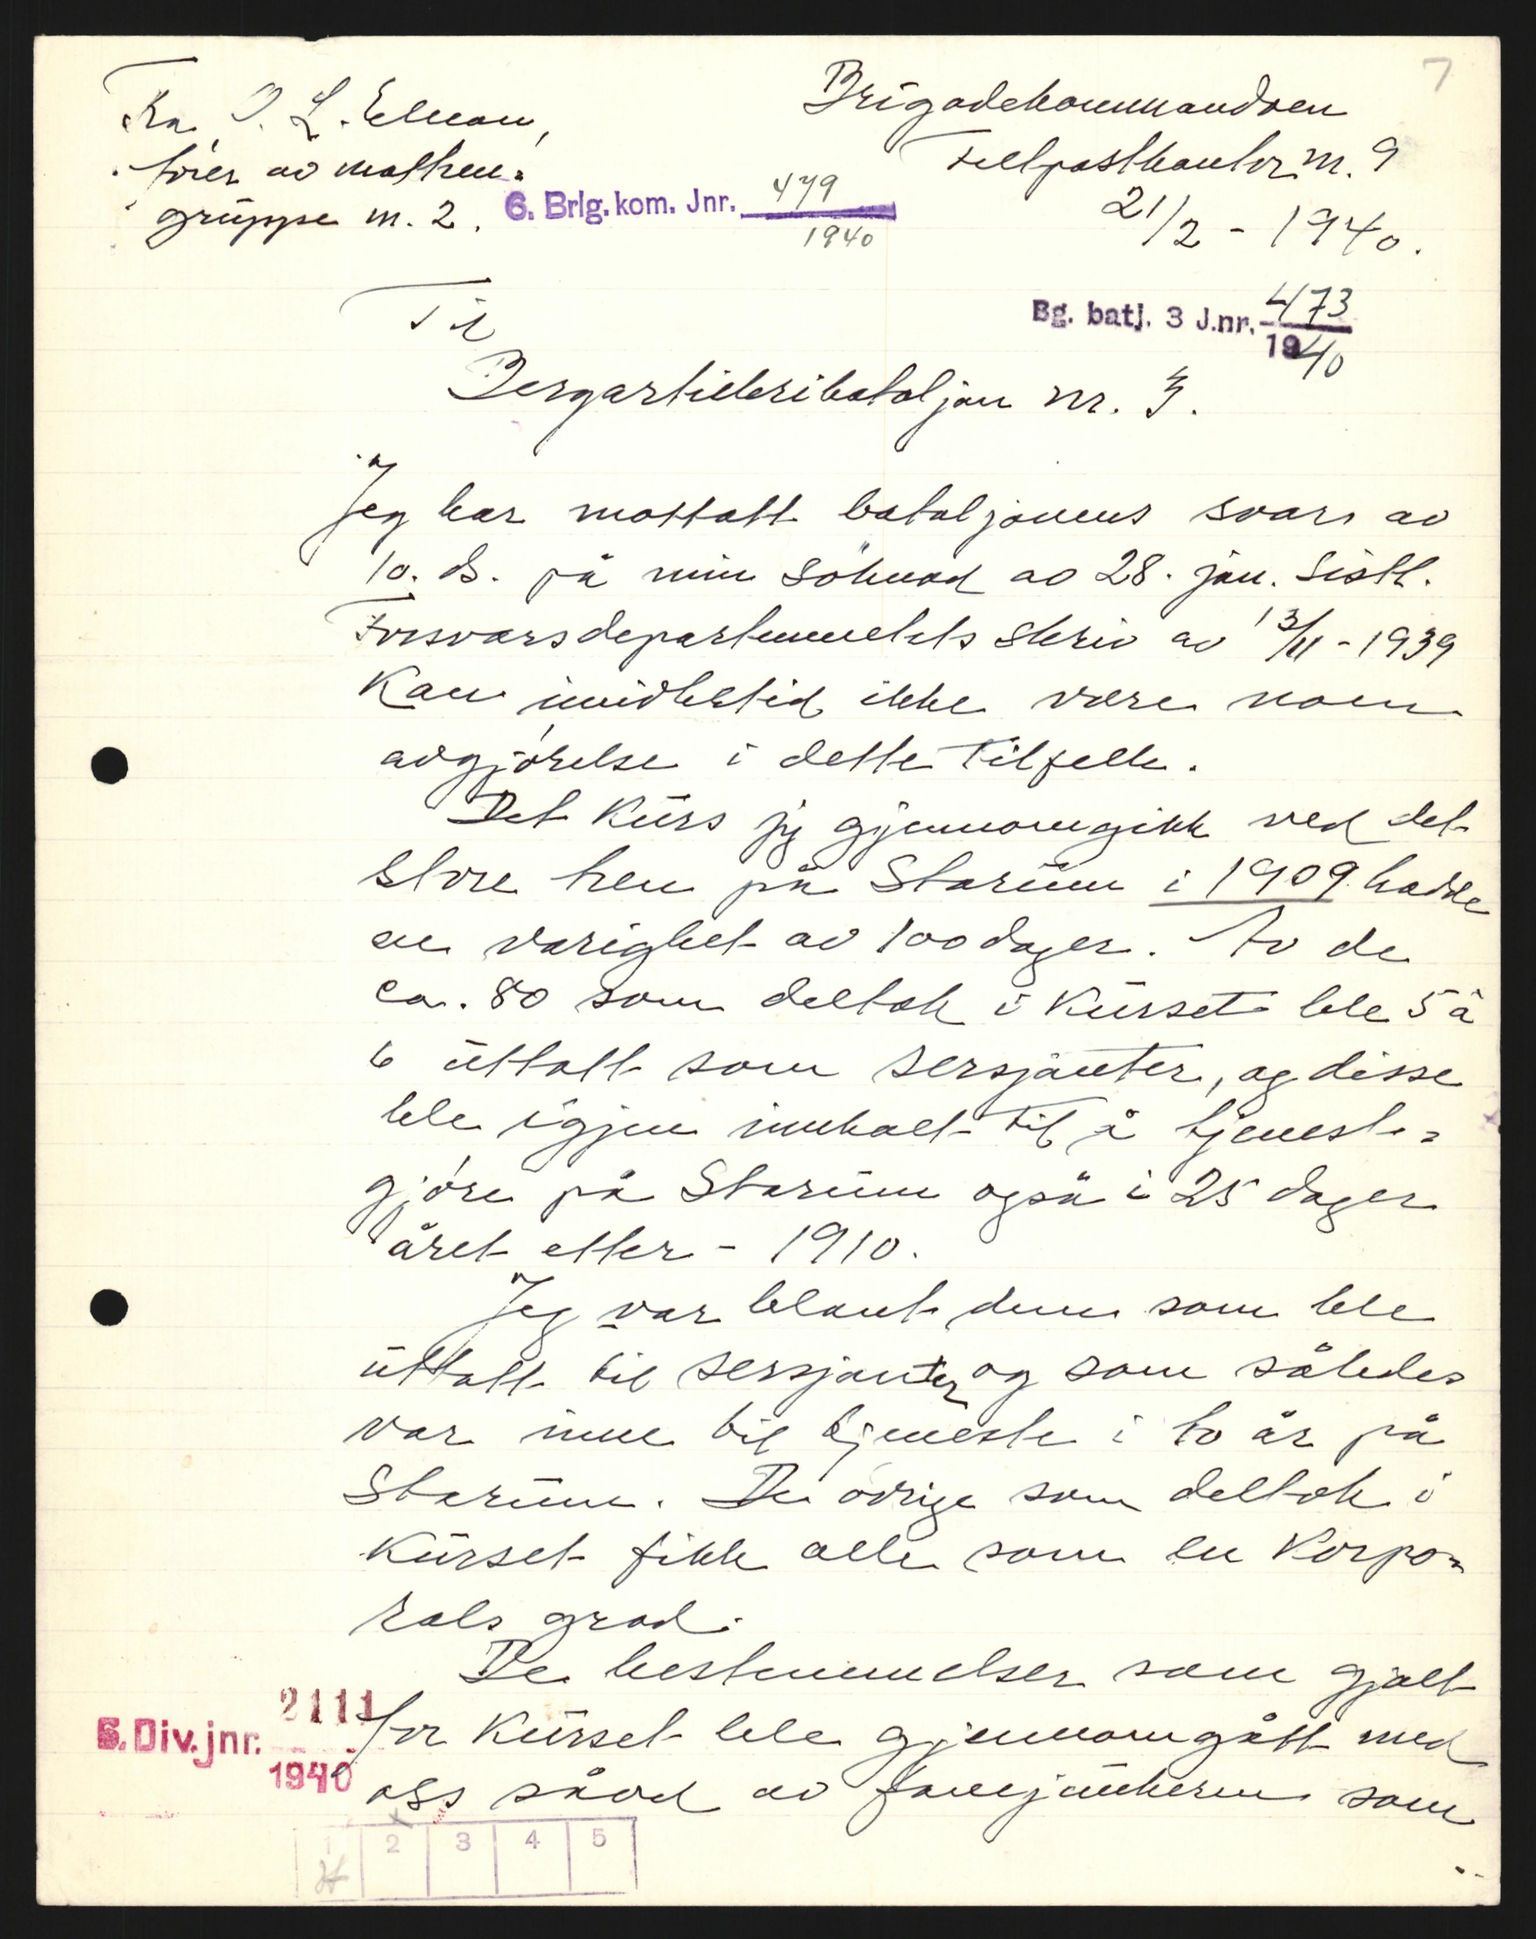 Fra O. L.
fører av matken-
gruppe nr. 2.
Brigadekommandoen
Feltpostkontor nr. 9
21/2 - 1940.
7
6. Brig.kom. Jnr. 479
1940
Bg. batj. 3 J.nr. 473
1940
Til
Bergartilleribataljon nr. 3.
Jeg har mottatt bataljonens svar av
10. ds. på min søknad av 28. jan. sistl.
Forsvarsdepartementets skriv av 13/11 - 1939
kan imidlertid ikke være noen
avgjørelse i dette tilfelle.
Det kurs jeg gjennomgikk ved det
store tren på Starum i 1909 hadde
en varighet av 100 dager. Av de
ca. 80 som deltok i kurset ble 5 à
6 uttatt som sersjanter, og disse
ble igjen innkalt til å tjeneste-
gjøre på Starum også i 25 dager
året etter - 1910.
Jeg var blant dem som ble
uttatt til sersjanter og som således
var inne til tjeneste i to år på
Starum. De øvrige som deltok i
kurset fikk alle som en korpo-
rals grad.
De bestemmelser som gjalt
for kurset ble gjennomgått med
oss såvel av fanejunkeren som
6. Div. jnr. 2111
1940
1 2 3 4 5